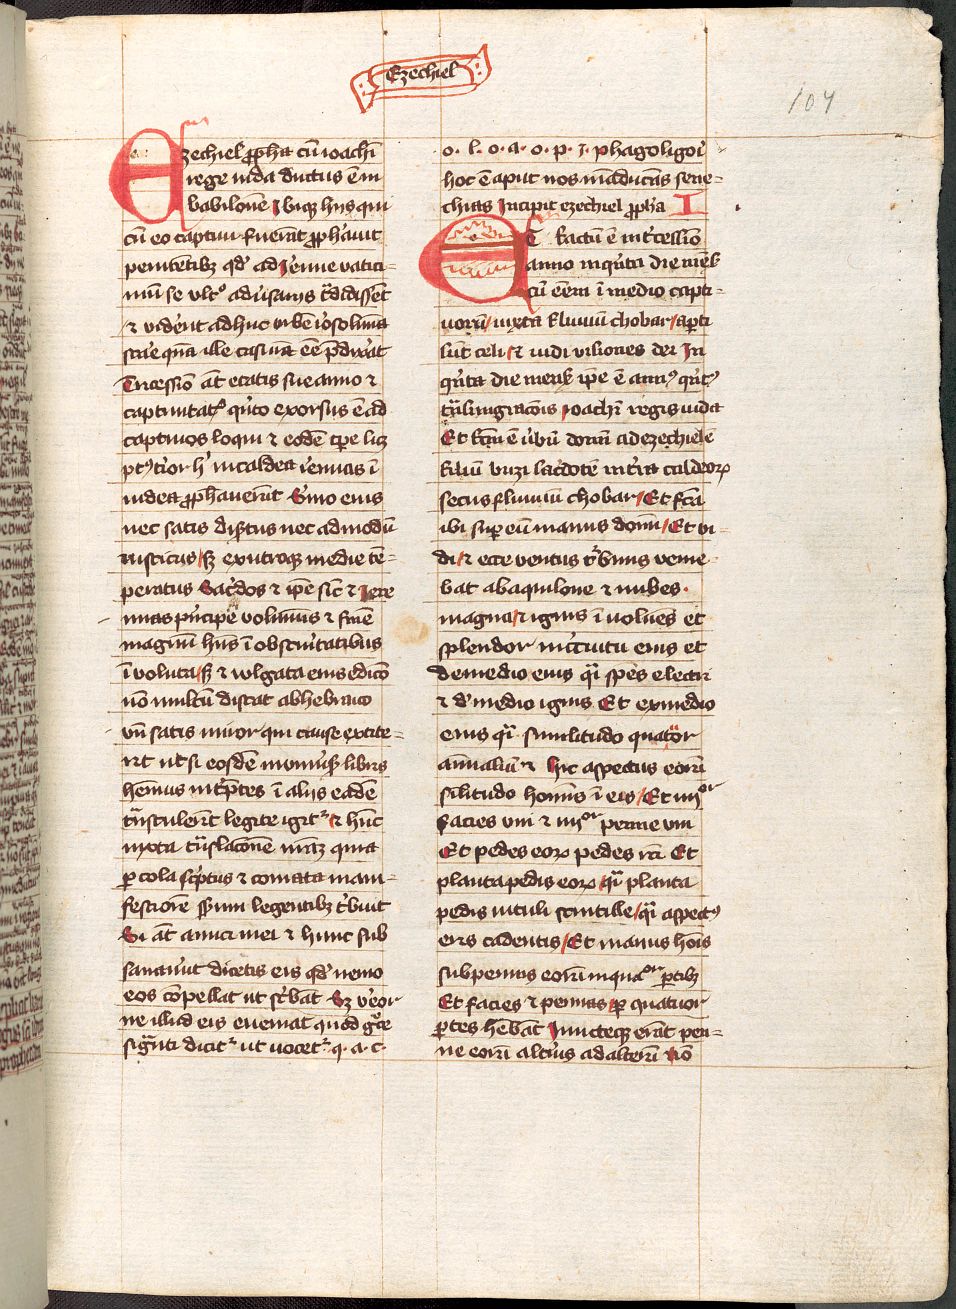 Ezechiel
107
Ezechiel ꝓpha cū ioachī
rege iuda ductus ē in
babilonē Ibiqꝫ hijs qui
cū eo captiui fuerāt ꝓphauit
penitētibꝫ qd̓ ad Ieremie vatici-
niū se vltͦ adu̓sarijs t̓didissēt
⁊ vidēt adhuc urbē iherosolimā
stare quā ille casurā eē p̄dixat
Tricesīo āt etatis sue anno ⁊
captiuitatꝰ qūto exorsus ē ad
captiuos loqui ⁊ eodē tꝑe licꝫ
pꝰterior hͥ in caldea ieremias ī
iudea ꝓphauerūt Sermo eius
nec satis disertus nec admodū
rusticus sꝫ ex utroqꝫ medie tē-
peratus Sac̓dos ⁊ ip̄e sic̄ ⁊ Iere
mias p̓ncipē volumīs ⁊ finē
magnū huīs ī obscuritatibus
ī voluta sꝫ ⁊ wlgata eius edicō
nō multū distat ab hebraico
vn̄ satis miror qui cause extite-
rit ut si eosdē in vniu̓sis libris
hēmus int̓ptes ī alijs eadē
t̓nstulerīt legite igit̄ᷣ ⁊ hūc
iuxta t̓nslacōnē nr̄aꝫ quia
ꝑ cola sc̓ptus ⁊ comata mani-
festiorē sensum legentibꝫ t̓buit
Si āt amici mei ⁊ hunc sub
sanau̓int dicetis eis qd̓ nemo
eos cōpellat ut sc̓bāt Sꝫ v̓eor
ne illud eis eueniat quod grece
significanti᷑ dicitᷣ ut vocetᷣ q· a· c·
o· l· o· a· o· p· i· phagoligoi
hoc ē aput nos māducātes sene-
chias Incipit ezechiel ꝓpha I
ET factū ē in tricesīo
anno in quīta die mēs̄
cū eēm ī medio capti-
uorū iuxta fluuiū chobar aꝑti
sūt celi ⁊ uidi visiones dei In
qūta die mensis ip̄e ē annꝰ qūtꝰ
t̓nsmigracōis ioachī regis iuda
Et factū ē u̓bū domī ad ezechielē
filiū buzi sac̓dotē in t̓ra caldeoꝝ
secus flumiū chobar Et fcā
ibi suꝑ eū manus domī Et vi-
di ⁊ ecce ventus t̓bīnis venie-
bat ab aquilone ⁊ nubes
magna ⁊ ignis ī uoluēs et
splendor in circuitu eius et
de medio eius q̄i spēs electri
⁊ d̓ medio ignis Et ex medio
eius q̄i similitudo quatuor
animaliū ⁊ hic aspectus eorū
silitudo homīs ī eis Et iiij͛ᵒʳ
facies vni ⁊ iiij͛ᵒʳ penne vni
Et pedes eoꝝ pedes rc̄i Et
planta pedis eoꝝ q̄i planta
pedis uituli scintille q̄i aspectꝰ
eris cadentis Et manus hoīs
sub pennis eorū in quaᵒʳ ꝑtibꝫ
Et facies ⁊ pennas ꝑ quatuor
ꝑtes hēbāt Iuncteqꝫ erāt pen-
ne eorū alt̓ius ad alterū nō